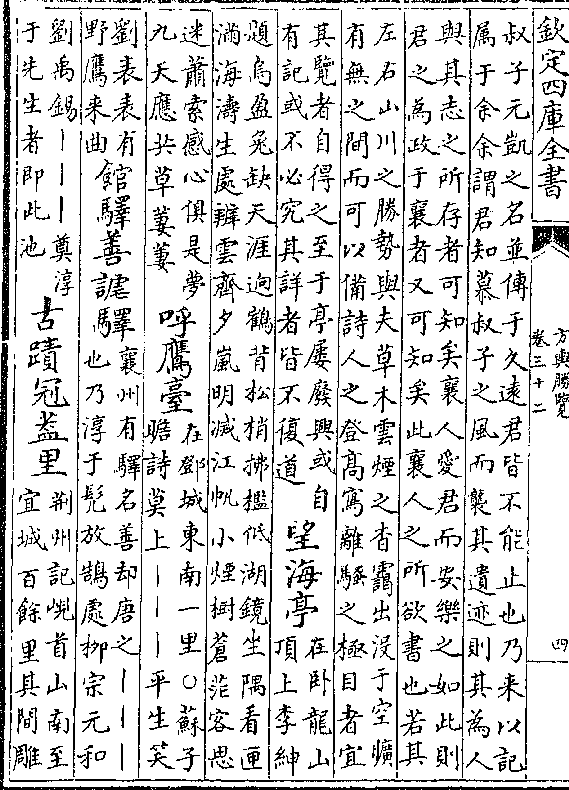 欽定四庫全書
方輿勝覽
卷三十二
四
叔子元凱之名並傳于久遠君皆不能止也乃来以記
属于余余謂君知慕叔子之風而襲其遺迹則其為人
與其志之所存者可知矣襄人愛君而安樂之如此則
君之為政于襄者又可知矣此襄人之所欲書也若其
左右山川之勝勢與夫草木雲煙之杳靄出没于空曠
有無之間而可以備詩人之登高寫離騷之極目者宜
其覽者自得之至于亭屢廢興或自
有記或不必究其詳者皆不復道
望海亭
在卧龍山
頂上李紳
題烏盈兔缺天涯逈鶴背松梢拂檻低湖鏡坐隅看匣
滿海濤生處辨雲齊夕嵐明滅江帆小煙樹蒼茫客思
迷蕭索感心俱是夢
九天應共草萋萋
呼鷹臺
在鄧城東南一里○蘇子
瞻詩莫上丨丨丨平生笑
劉表表有
野鷹来曲
館驛善謔驛
襄州有驛名善却唐之丨丨丨
也乃淳于髡放鵠處柳宗元和
劉禹錫丨丨丨奠淳
于先生者即此池
古蹟冠蓋里
荆州記峴首山南至
宜城百餘里其間雕